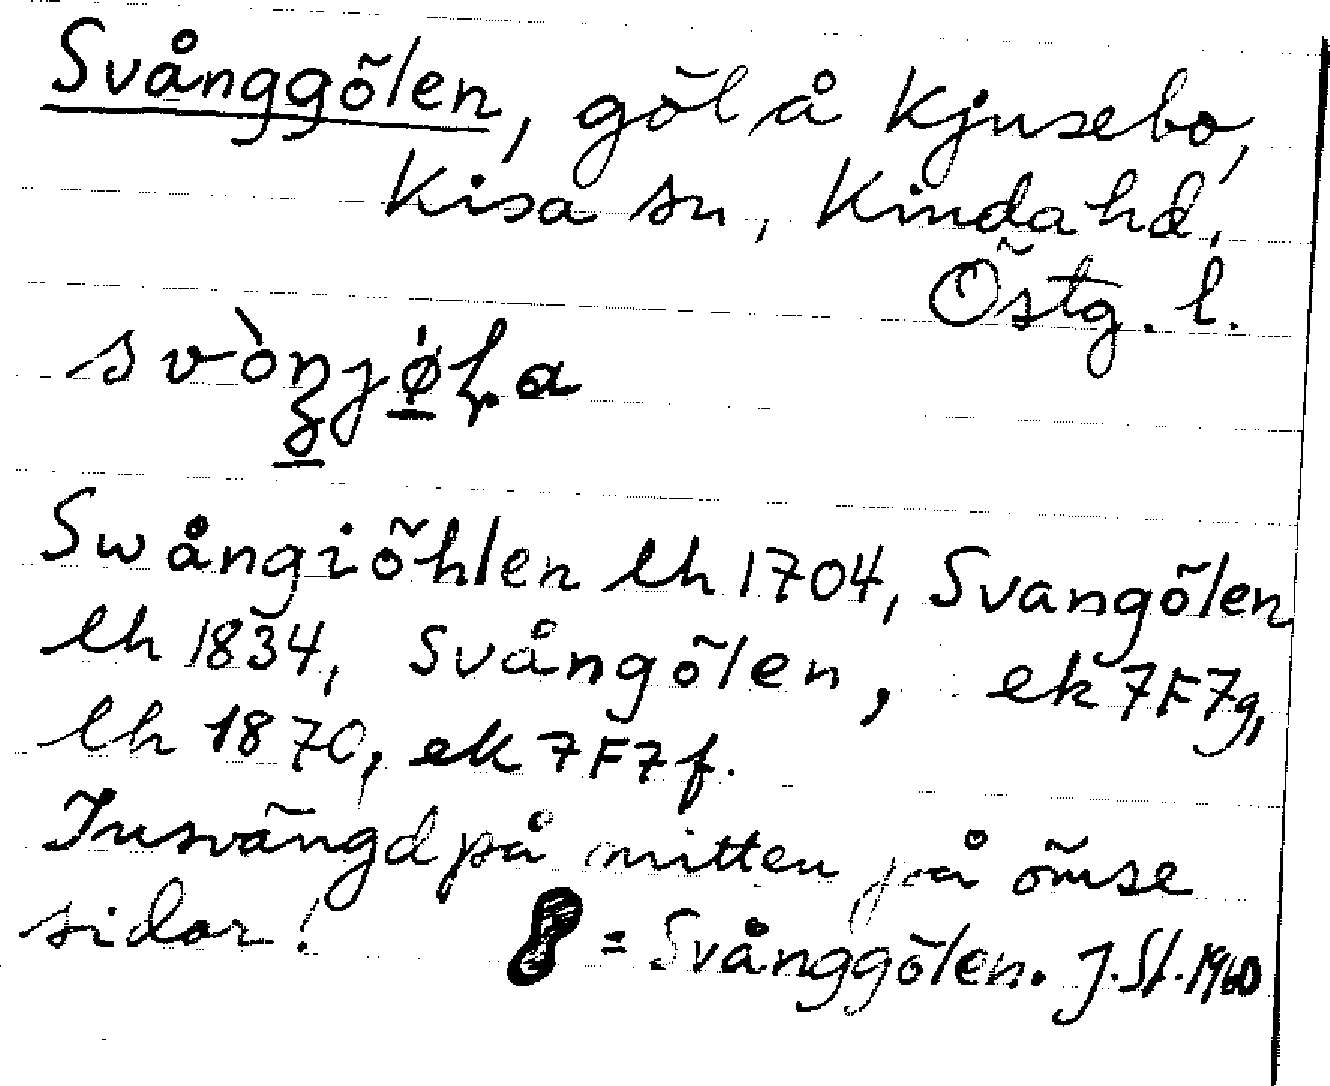 Svånggölen, göl å Kjusebo,
Kisa sn, Kinda hd,
Östg. l.
Swångiöhlen lh 1704, Svangölen
lh 1834, Svångölen, ek 7F7g,
lh 1870, ek 7F7f.
Insvängd på mitten på ömse
sidor! = Svånggölen. J.St. 1960